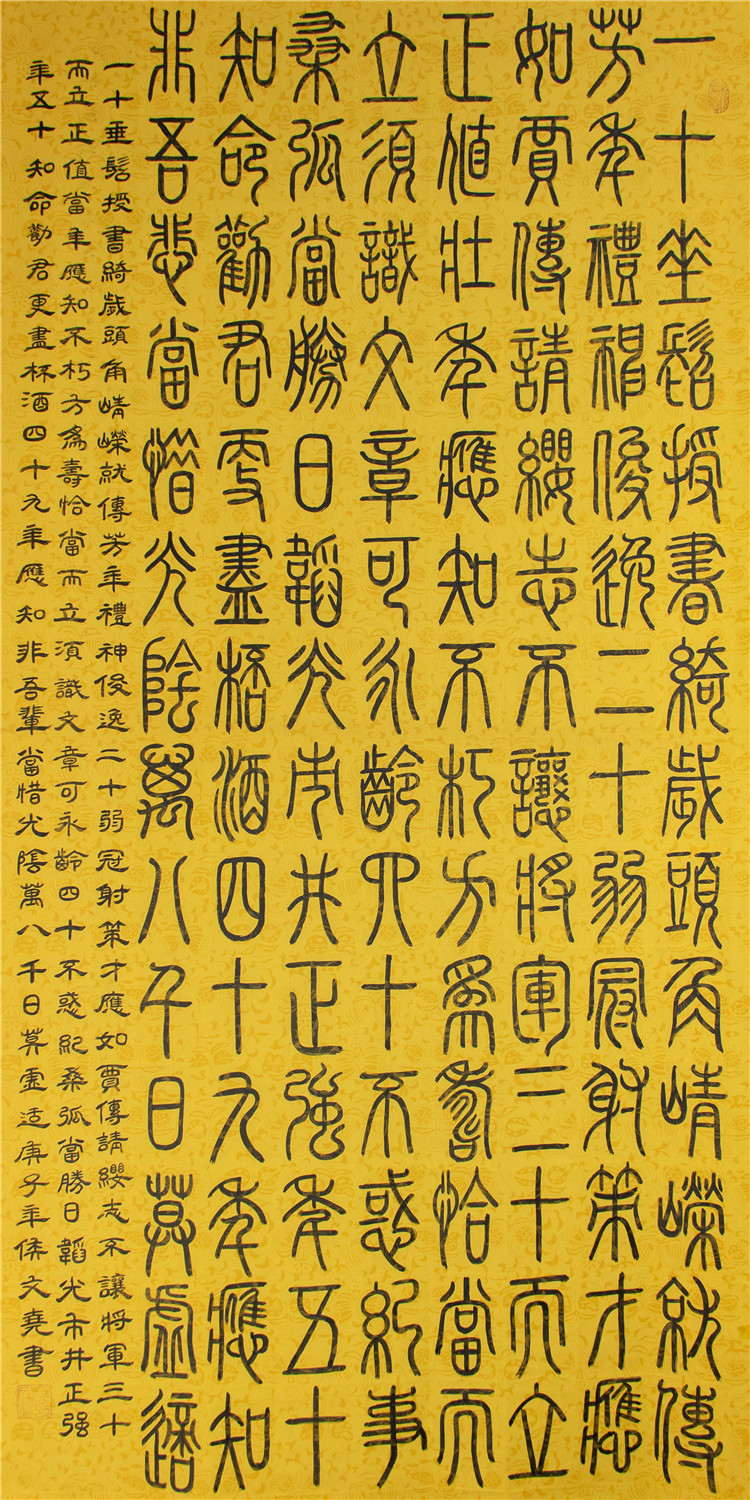 一十垂髫授書綺歲頭角崝嶸就傳
芳年禮神俊逸二十弱冠射策才應
如賈傳請纓志不讓將軍三十而立
正值壯年應知不朽方為壽恰當而
立須識文章可永齡四十不惑紀事
桑弧當勝日韜光市井正強年五十
知命勸君更盡桮酒四十九年應知
非吾悲當惜光陰萬八千日莫虛適
一十垂髫授書綺歲頭角崝嶸就傳芳年禮神俊逸二十弱冠射策才應如賈傳請纓志不讓將軍三十
而立正值當年應知不朽方為壽恰當而立須識文章可永齡四十不惑紀桑弧當勝日韜光市井正强
年五十知命勸君更盡杯酒四十九年應知非吾輩當惜光陰萬八千日莫虛适庚子年侯文堯書